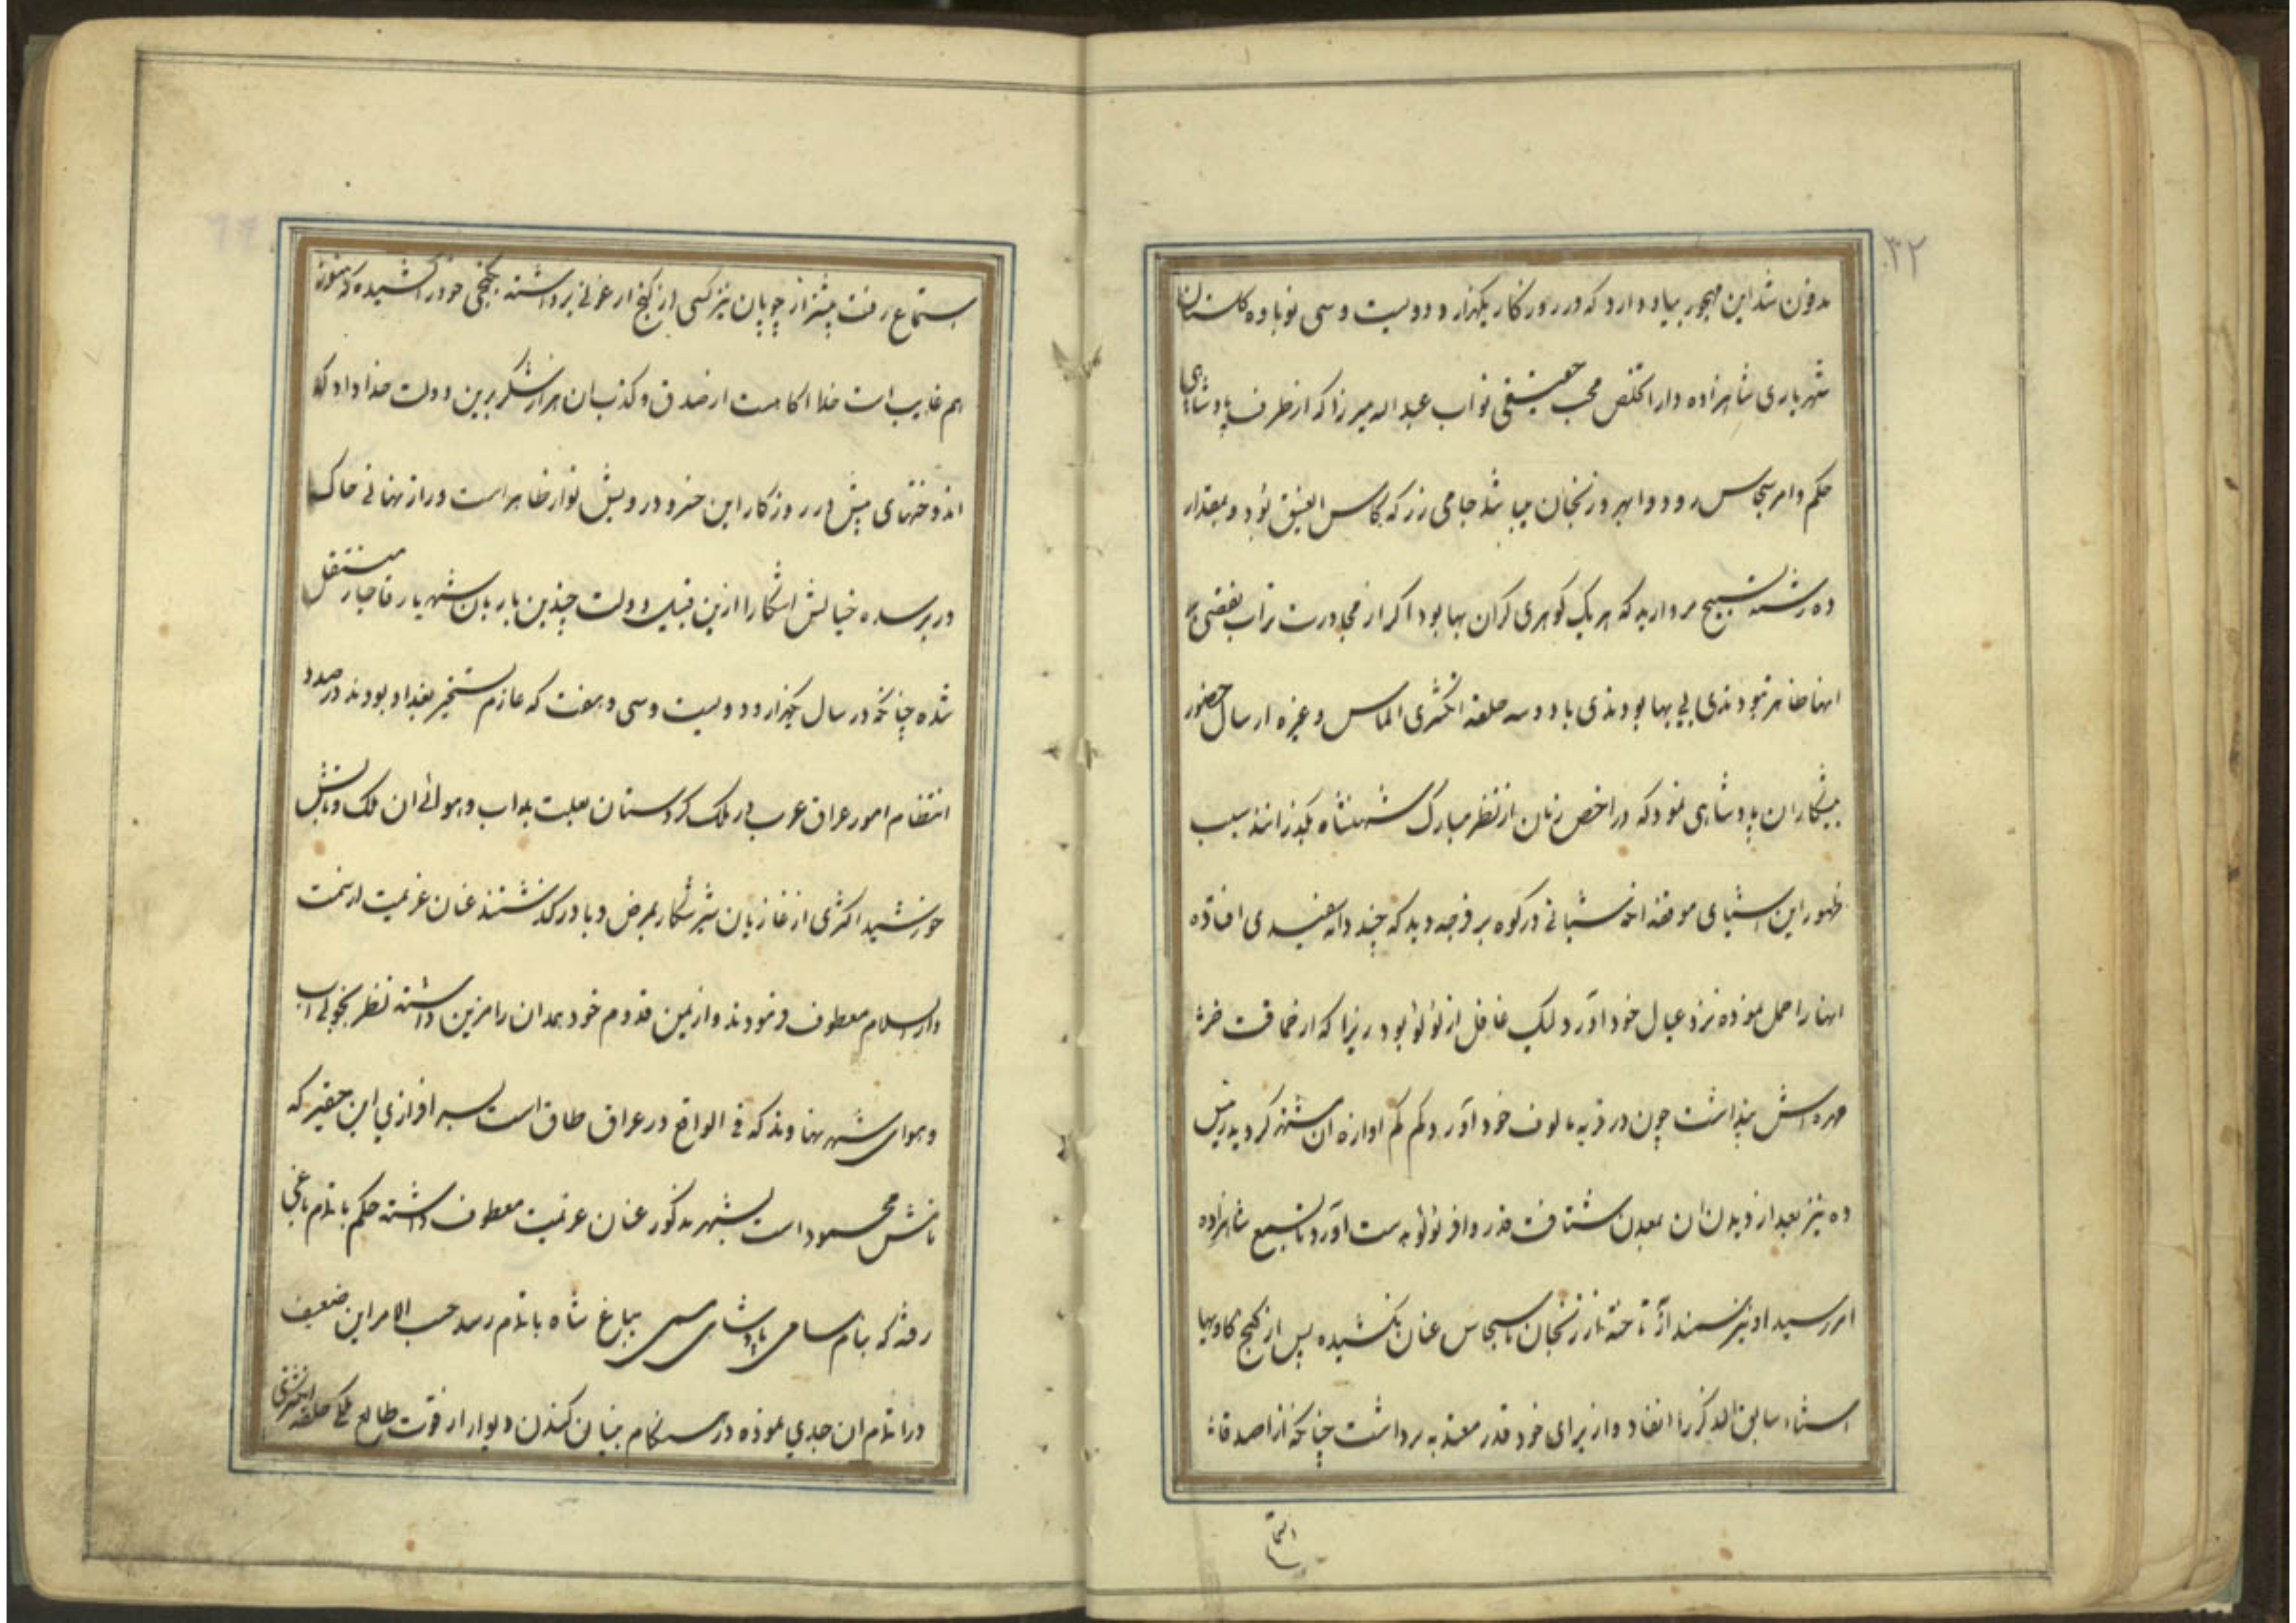 ۳۲
مدفون شد این مهجور بیاد دارد که در روزکار یکهزار و دویست و سی نوباوه کلستان
شهریاری شاهزاده دارا تخلص محب حقیقی نواب عبد اله میرزا که از طرف پادشاهی
حکم و امر سجاس رود و ابهر و زنجان میباشد جامی زر که بکاس العیق بود و بمقدار
ده رشته تسبیح مروارید که هر یک کوهری کران بها بود اکر از مجاورت تراب بعضی
انها ضایر نبودندی بی بها بودندی با دو سه حلقه انکشتری الماس و غیره ارسال حضور
پیشکاران پادشاهی نمود که در اخص زمان از نظر مبارک شهنشاه بکذرانند سبب
ظهور این اشیای موفقه انکه شبانی در کوه بر فرجه دید که چند دانه سفیدی افتاده
انها را حمل نموده نزد عیال خود اورد لیک غافل از لؤلؤ بود زیرا که از حماقت خرش
مهره اش پنداشت چون در قریه مالوف خود اورد کم کم اوازه ان مشتهر کردید رییس
ده نیز بعد از دیدن ان بمعدن شتافت قدر وافر لؤلؤ بدست اورد تا بسمع شاهزاده
امر رسید او نیز سمند از تاخته از زنجان تا سجاس عنان نکشیده پس از کنج کاویها
اشیاء سابق الذکر را انفاد و از برای خود قدر معتد به برداشت چنانکه از اصدقاء
استما
بستماع رفت پیشتر از چوپان نیز کسی از کنج ارغونی برداشته بکنجی خود را کشیده که هنوز
هم غایب است خدا اکاهست از صدق و کذب ان هزار شکر برین دولت خداداد که
اندوختهای پیش در روزکار این خسرو درویش نواز ظاهر است و راز نهانی خاک
در برسده خیالش اشکارا ازین قبیل دولت چندین بار بان شهریار قاجار منتقل
شده چنانکه در سال یکهزار و دویست و سی و هفت که عازم تسخیر بغداد بودند در صدد
انتظام امور عراق عرب در ملک کردستان بعلت بد اب و هوائی ان ملک و تابش
خورشید اکثری از غازیان شیر شکار بمرض وبا در کذشتند عنان عزیمت از سمت
دار السلام معطوف فرمودند و از یمن قدوم خود همدان را مزین داشته نظر بخوبی اب
و هوای شهر نهاوند که فی الواقع در عراق طاق است بسر افرازی این حقیر که
نامش محمود است بشهر مذکور عنان عزیمت معطوف داشته حکم باتمام باغی
رفته که بنام سامی پادشاهی مسمی بباغ شاه باتمام رسد حسب الامر این ضعیف
در اتمام ان جدی نموده در هنکام بنیان کندن دیوار از قوت طالع ملکی حلقه انکشتری